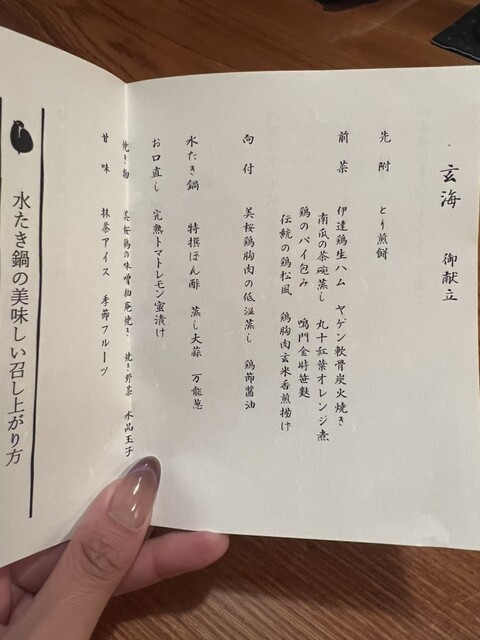 玄海 御献立
先附 とり煎餅
前菜 伊達鶏生ハム ヤゲン軟骨炭火焼き
南瓜の茶碗蒸し 丸十紅葉オレンジ煮
鶏のパイ包み 鳴門金時笹麩
伝統の鶏松風 鶏胸肉玄米香煎揚げ
向付 美桜鶏胸肉の低温蒸し 鶏節醤油
水たき鍋 特撰ぽん酢 蒸し大蒜 万能葱
お口直し 完熟トマトレモン蜜漬け
焼き物 美桜鶏の味噌柚庵焼き 焼き野菜 水晶玉子
甘味 抹茶アイス 季節フルーツ
水たき鍋の美味しい召し上がり方